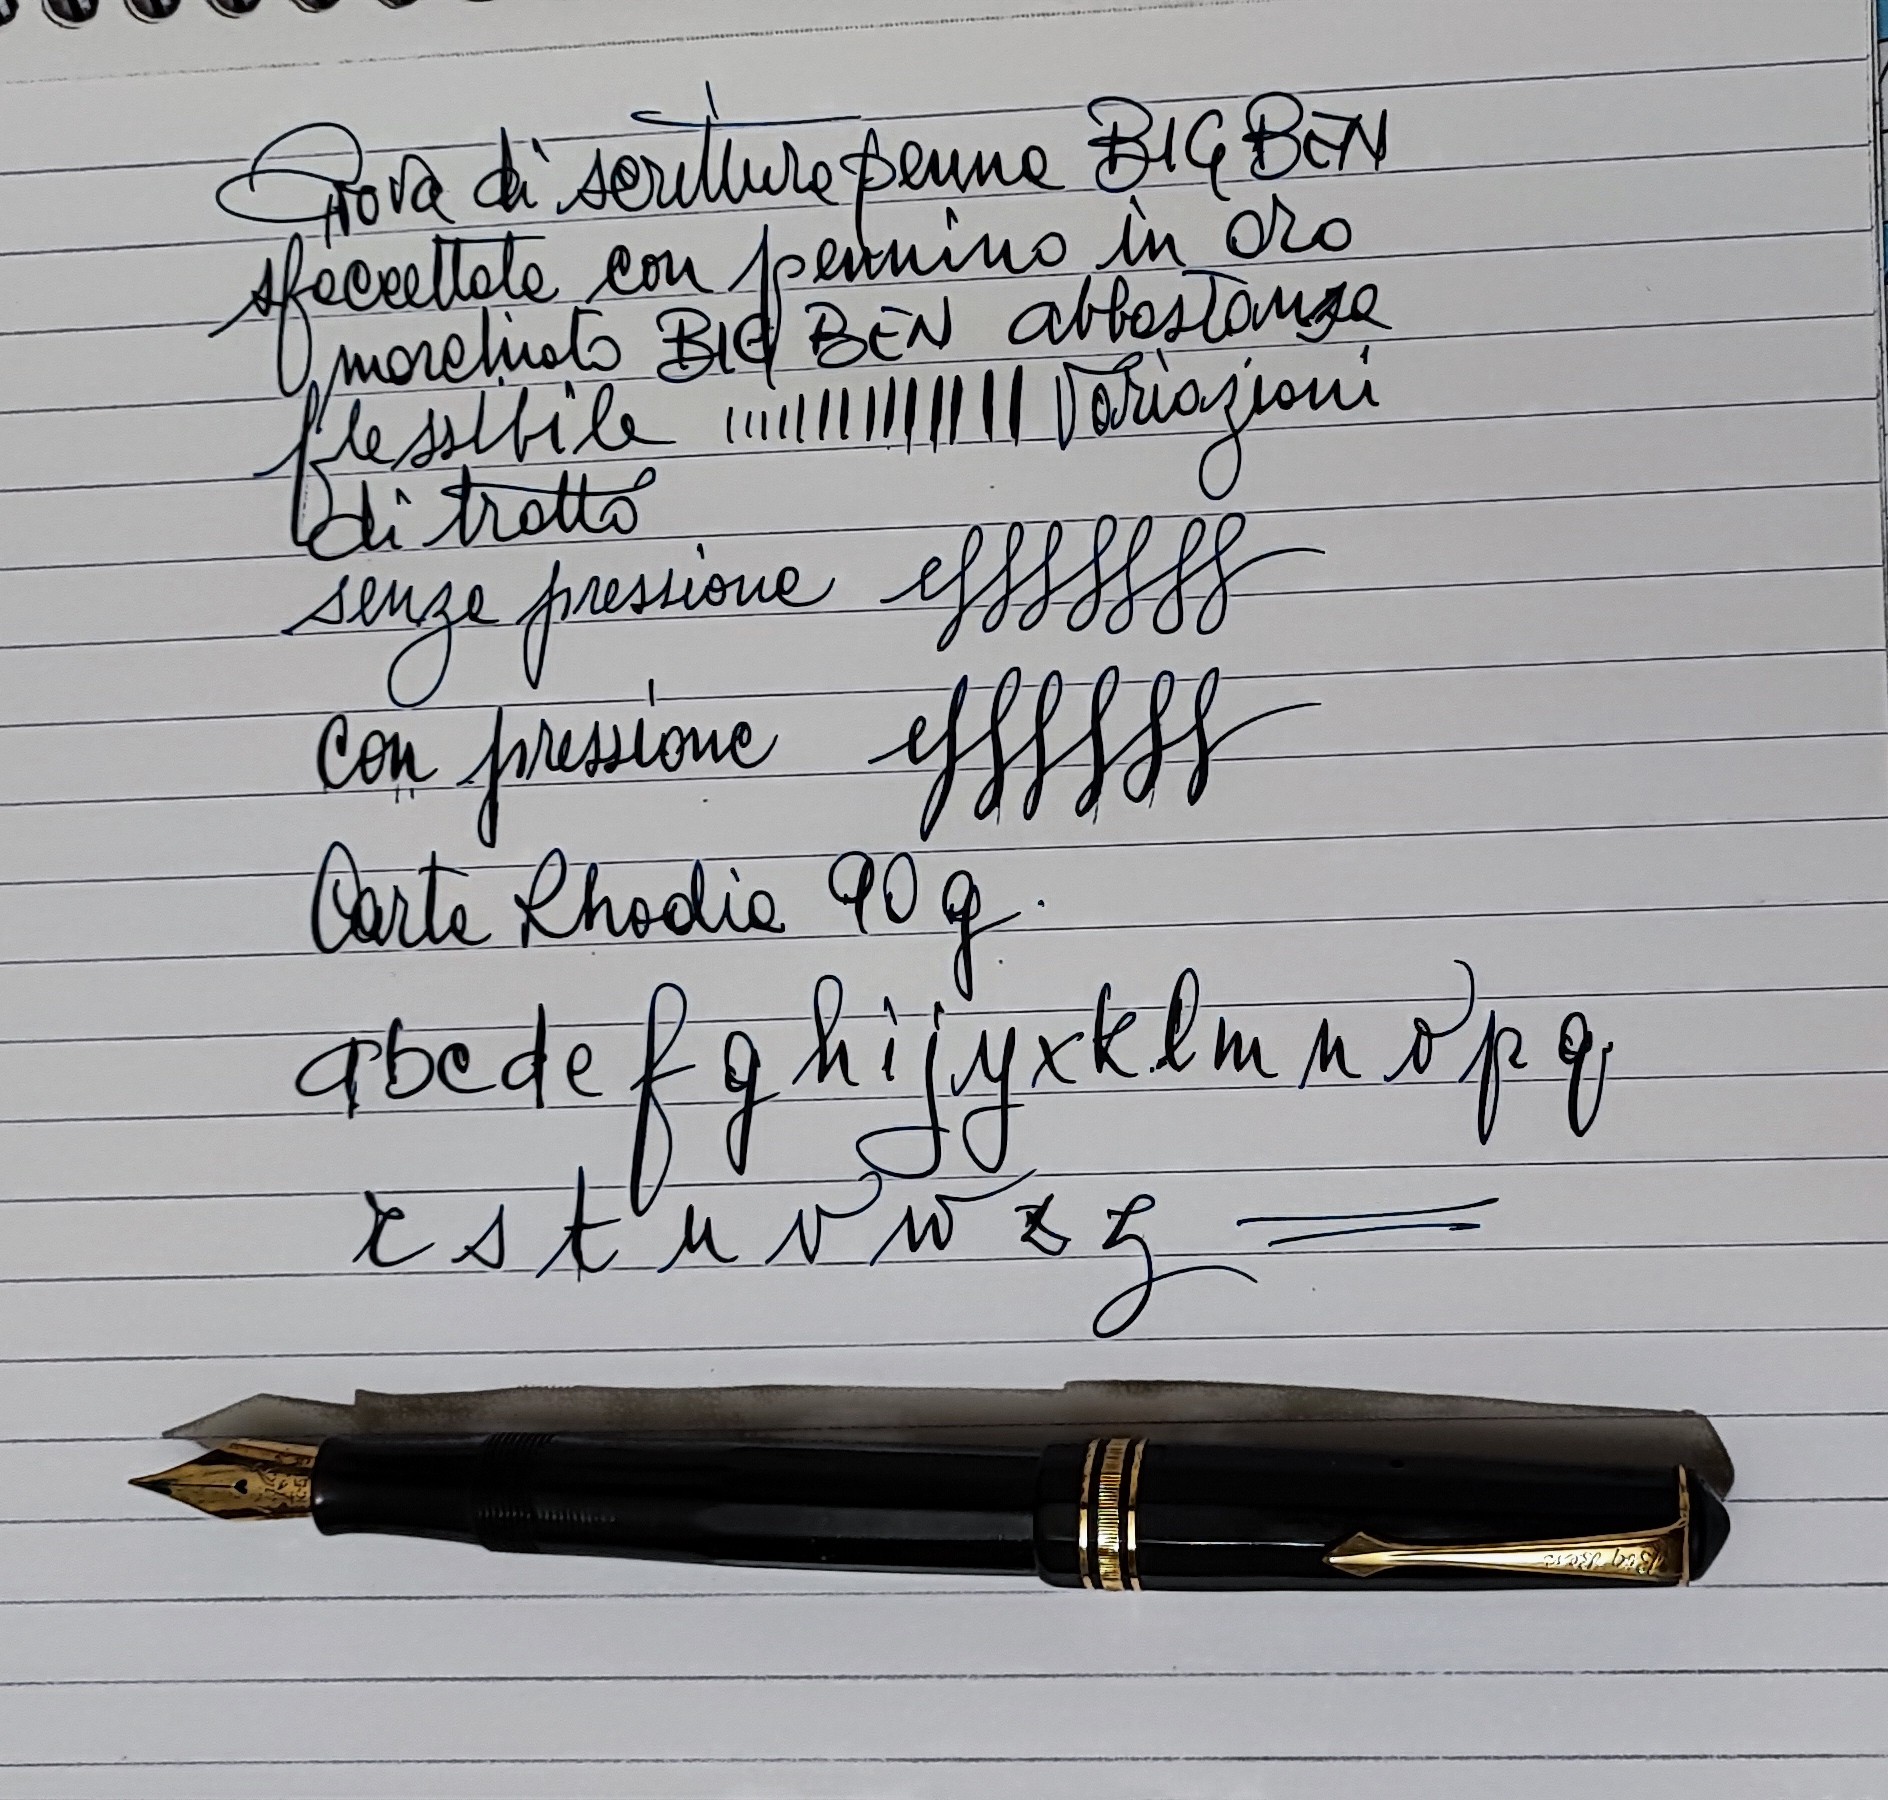 Prova di scrittura penna BIG BEN
sfaccettata con pennino in oro
marchiato BIG BEN abbastanza
flessibile Variazioni
di tratto
senza pressione
con pressione
Carta Rhodia 90 g.
a b c d e f g h i j y x k l m n o p q
r s t u v w z z
Big Ben